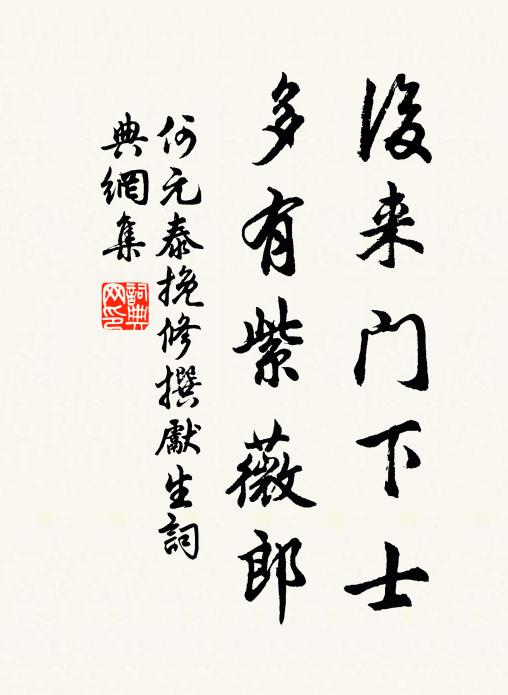 後来门下士
多有紫薇郎
何元泰挽修撰獻生詞
典網集
詞典
网印